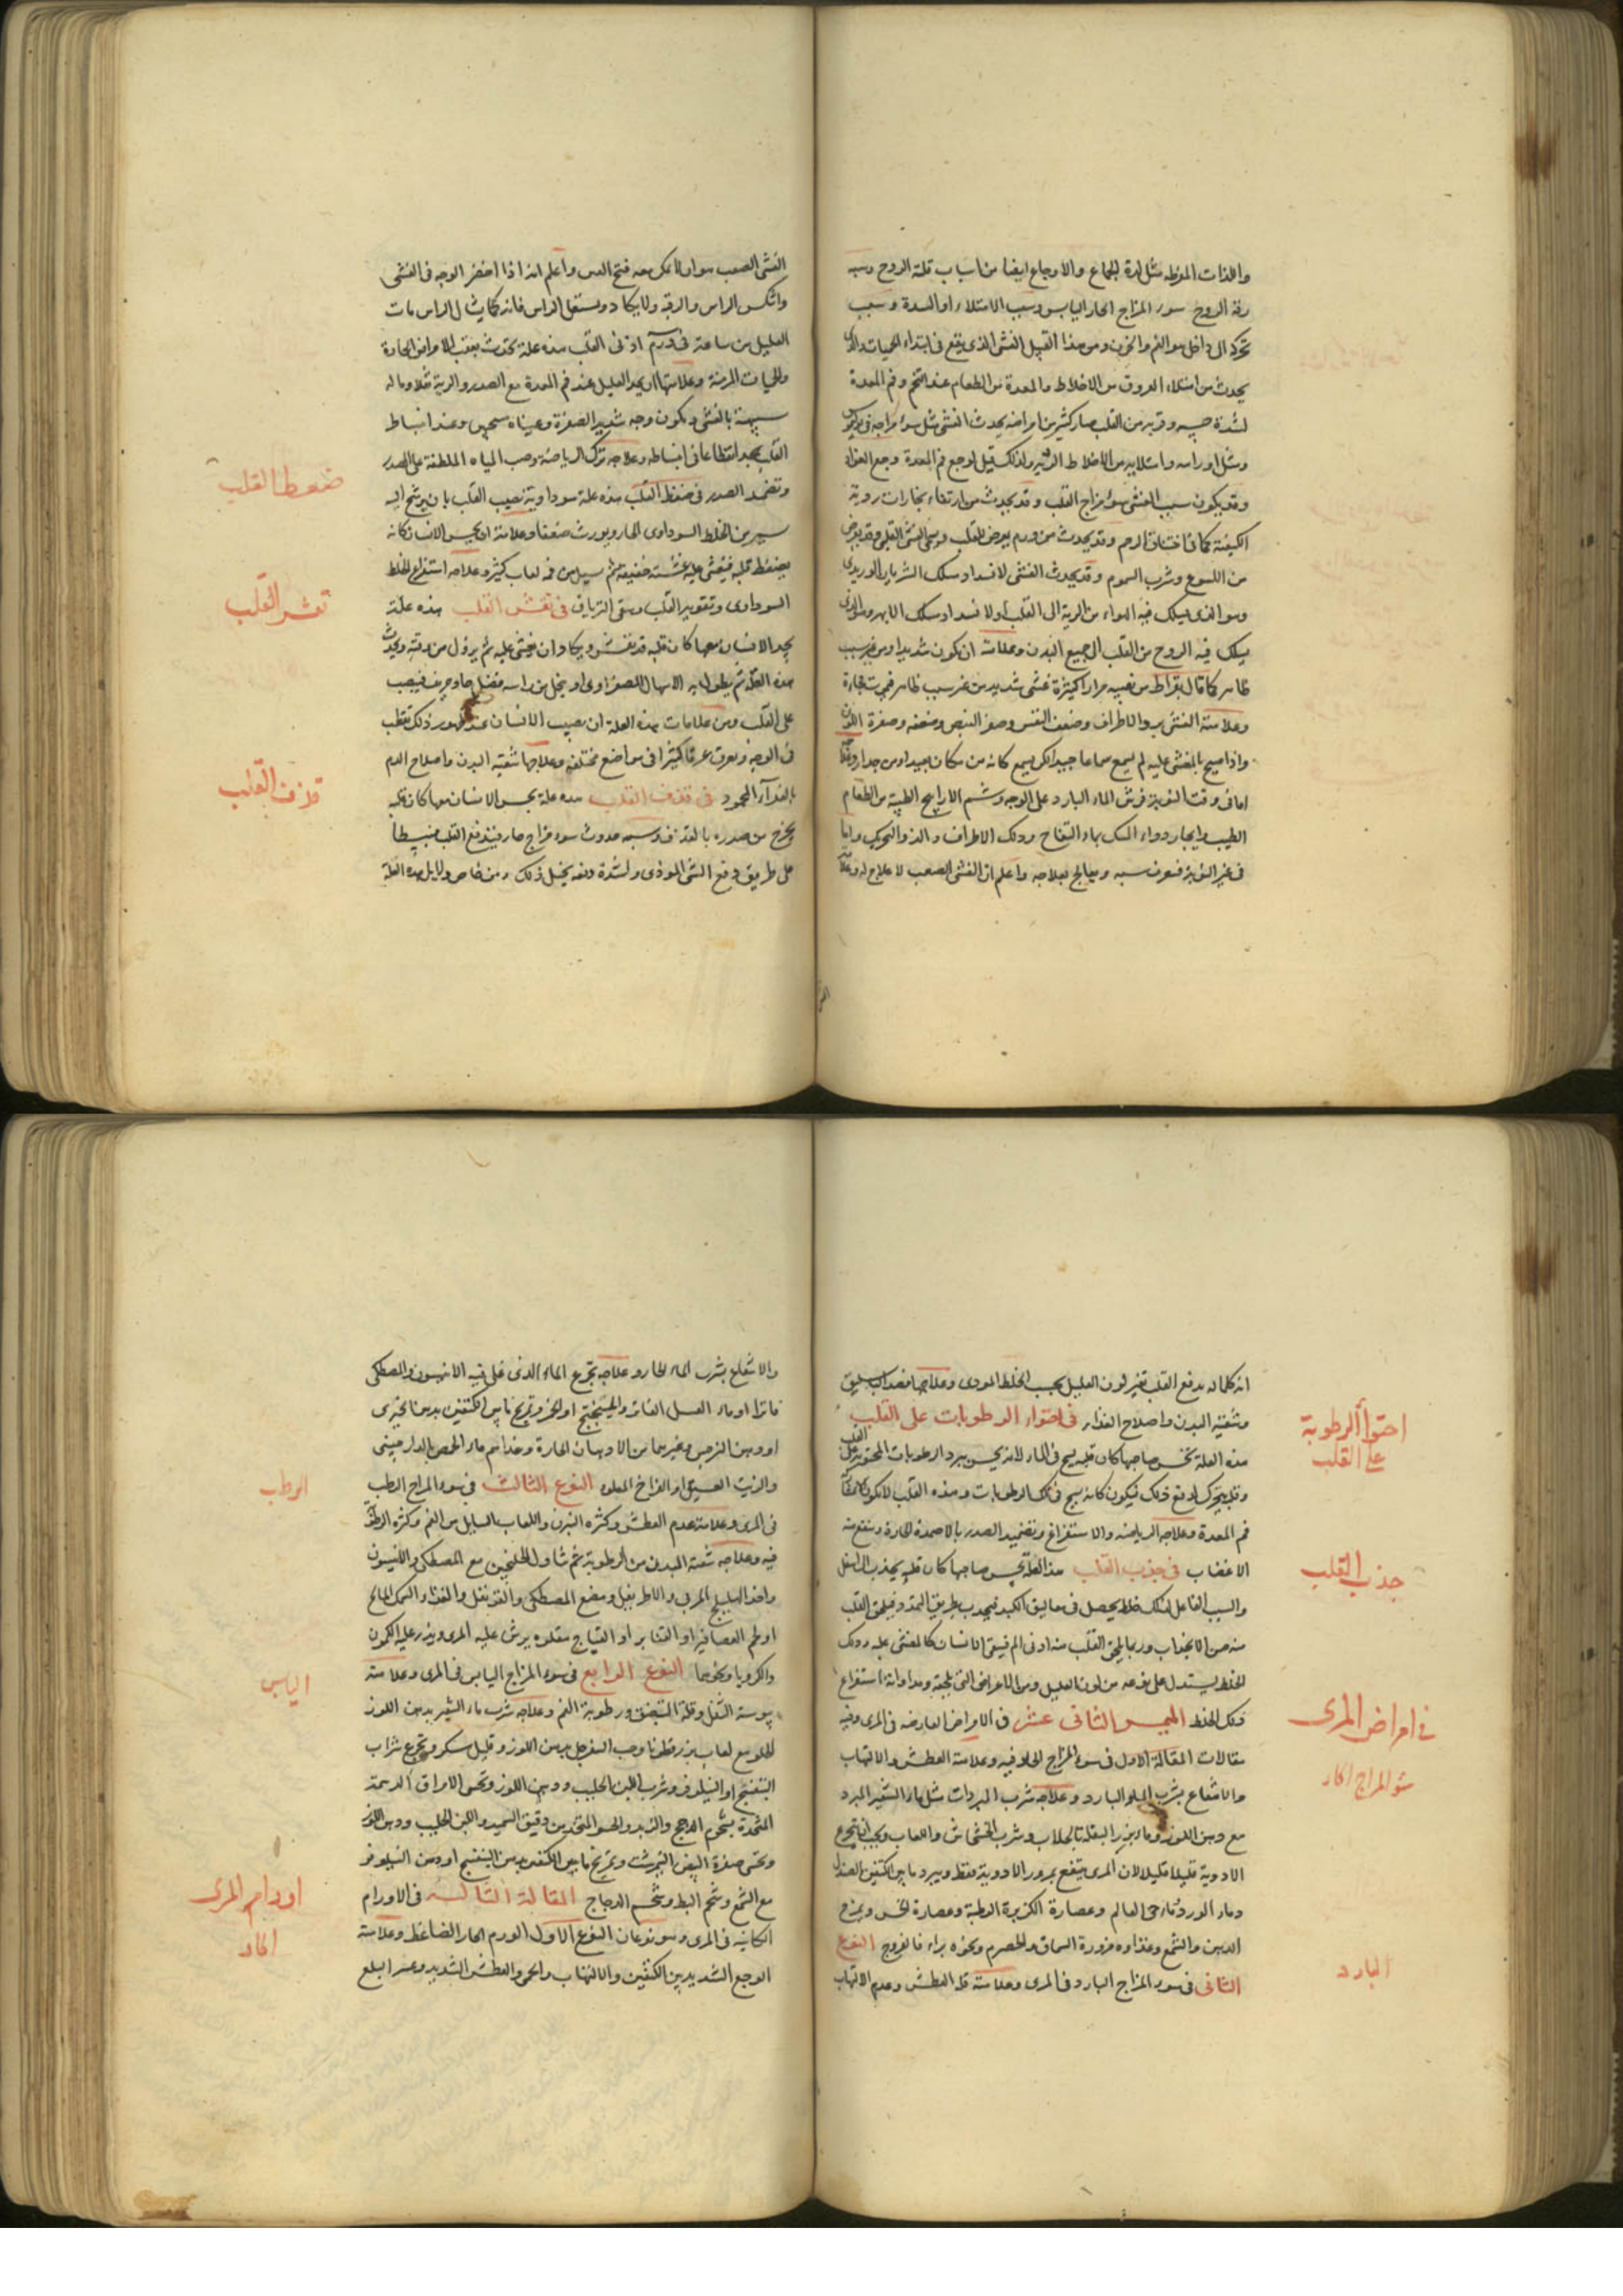 واللذات المفرطه مثل لذة الجماع والاوجاع ايضا من اسباب قلة الروح وسبب
رقة الروح سوء المزاج الحار اليابس وسبب الامتلاء او السدة وسبب
تحركه الى داخل هو الغم والحزن ومن هذا القبيل الغشى الذى يقع فى ابتداء الحميات والذى
يحدث من امتلاء العروق من الاخلاط والمعدة من الطعام عند التخم وفم المعدة
لشدة حسه وقربه من القلب صار كثير من امراضه يحدث الغشى مثل سوء مزاجه
ومثل اورامه وامتلائه من الاخلاط ولذلك قيل لوجع فم المعدة وجع الفواد
وقد يكون سبب الغشى سوء مزاج القلب وقد يحدث من ارتقاء بخارات ردية
الكيفية كما فى اختناق الرحم وقد يحدث من ورم يعرض للقلب
من اللسوع وشرب السموم وقد يحدث الغشى لانسداد مسلك الشريان الوريدى
وهو الذى يسلك فيه الهواء من الرية الى القلب او لانسداد مسلك الابهر وهو الذى
يسلك فيه الروح من القلب الى جميع البدن وعلامته ان يكون شديدا ومن غير سبب
ظاهر كما قال بقراط من يصيبه مرارا كثيرة غشى شديد من غير سبب ظاهر فهو يموت فجاءة
وعلامة الغشى برد الاطراف وضعف النفس وصغر النبض وضعفه وصفرة اللون
واذا صيح بالمغشى عليه لم يسمع سماعا جيدا لكن يسمع كانه من مكان بعيد او من جدار
اما فى وقت النوبة فرش الماء البارد على الوجه وشم الاراييح الطيبة من الطعام
الطيب وايجار دواء المسك بماء التفاح ودلك الاطراف
فى غير النوبة فتعرف سببه ويعالج بعلاجه واعلم ان الغشى الصعب لا علاج له
الغشى الصعب هو ان لا يمكن معه فتح الفم واعلم انه اذا اخضر الوجه فى الغشى
وانتكس الراس والرقبة ولا يكاد يستقل الراس فانه كما يشال الراس مات
العليل من ساعته فى ورم اذنى القلب هذه علة تحدث بعقب الامراض الحادة
والحميات المزمنة وعلامتها ان يجد العليل عند فم المعدة مع الصدر والرية ثقلا
شبيهة بالغشى ويكون وجهه شديد الصفرة وعيناه وعند انبساط
القلب يجد انقطاعا فى انبساطه وعلاجه ترك الرياضة وصب المياه الملطفة على الصدر
وتضميد الصدر فى ضغط القلب هذه علة سوداوية تصيب القلب بان يرشح اليه
يسير من الخلط السوداوى الحار ويورث ضعفا وعلامته ان يحس الانسان كانه
يضغط قلبه فيغشى عليه غشية خفيفة ثم يسيل من فمه لعاب كثير وعلاجه استفراغ الخلط
السوداوى وتقوية القلب وسقى الترياق فى تقشر القلب هذه علة
يجد الانسان معها كان قلبه قد تقشر ويكاد ان يغشى عليه ثم يزول من وقته ويحدث
هذه العلة ثم يطول به الاسهال الصفراوى او ينحل من راسه فضل حاد حريف فيصب
على القلب ومن علامات هذه العلة ان يصيب الانسان عند ظهور ذلك تقطب
فى الوجه ويعرق عرقا كثيرا فى مواضع مختلفة وعلاجها تنقية البدن واصلاح الدم
بالغذاء المحمود فى قذف القلب هذه علة يحس الانسان معها كان قلبه
يخرج من صدره بالقذف وسببه حدوث سوء مزاج حار فيندفع القلب منبسطا
على طريق دفع الشى الموذى ولشدة دفعه يخيل ذلك ومن خاص دلايل هذه العلة
ضغط القلب
تقشر القلب
قذف القلب
انه كلما اندفع القلب تغير لون العليل بحسب الخلط الموذى وعلاجها فصد الباسليق
وتنقية البدن واصلاح الغذاء فى احتواء الرطوبات على القلب
هذه العلة يحس صاحبها كان قلبه يسبح فى الماء لانه يحس ببرد الرطوبات المحتوية على القلب
وقد يتحرك لدفع ذلك فيكون كانه يسبح فى تلك الرطوبات وهذه القلب
فم المعدة وعلاجه الرياضة والاستفراغ وتضميد الصدر بالاضمدة الحارة
الاعضاب فى جذب القلب هذا العلة يحس صاحبها كان قلبه يجذب الى اسفل
والسبب الفاعل لذلك خلط يحصل فى معاليق الكبد فيجذب بطريق التمدد فيلحق القلب
منه من الانجذاب وربما يلحق القلب منه اذى الم فيبقى الانسان كالمغشى عليه وذلك
الخلط يستدل على نوعه من لون العليل ومن الاعراض التى تلحقه ومداواته استفراغ
ذلك الخلط الجنس الثانى عشر فى الامراض العارضه فى المرى وفيه
مقالات المقالة الاولى فى سوء المزاج الحار فيه وعلامته العطش والالتهاب
والانتفاع بشرب الماء البارد وعلاجه شرب المبردات مثل ماء الشعير المبرد
مع دهن اللوز وماء بزر البقلة بالجلاب وشرب الخشخاش واللعاب ويجب ان يتجرع
الادوية قليلا قليلا لان المرى ينتفع بمرور الادوية فقط ويبرد ما بين الكتفين بالصندل
وماء الورد وماء حى العالم وعصارة الكزبرة الرطبة وعصارة الخس ويمرخ
الدهن والشمع وغذاوه مزورة السماق والحصرم ونحوه براء فالفروج النوع
الثانى فى سوء المزاج البارد فى المرى وعلامته قلة العطش وعدم الالتهاب
احتواء الرطوبة
على القلب
جذب القلب
فى امراض المرى
سوء المزاج الحار
البارد
والانتفاع بشرب الماء الحار وعلاجه تجرع الماء الذى غلى فيه الانيسون والمصطكى
فاترا او ماء العسل الفاتر والميبختج او الخمر وتمريخ ما بين الكتفين بدهن الخيرى
او دهن النرجس وغيرهما من الادهان الحارة وغذاءهم ماء الحمص بالدارصينى
والزيت العسيق او الفراخ المقلوه النوع الثالث فى سوء المزاج الرطب
فى المرى وعلامته عدم العطش وكثره البزاق واللعاب السايل من الفم وكثره الرطوبة
فيه وعلاجه تنقية البدن من الرطوبة ثم تناول الجلنجبين مع المصطكى والانيسون
واخذ الهليلج المربى والاطريفل ومضغ المصطكى والقرنفل والغذاء السمك المالح
او لحم العصافير او القنابر او القباج مقلوه يرش عليه المرى ويذر عليه الكمون
والكرويا ونحوهما النوع الرابع فى سوء المزاج اليابس فى المرى وعلامته
يبوسة الثفل وقلة البزاق ورطوبة الفم وعلاجه شرب ماء الشعير بدهن اللوز
الحلو مع لعاب بزر قطونا وحب السفرجل بدهن اللوز وقليل سكر وتجرع شراب
البنفسج او النيلوفر وشرب اللبن الحليب ودهن اللوز وتحسى الامراق الدسمة
المتخذة بشحوم الدجج والزبد والحسو المتخذ من دقيق السميد واللبن الحليب ودهن اللوز
وتحسى صفرة البيض النيمرشت وتمريخ ما بين الكتفين بدهن البنفسج او دهن النيلوفر
مع الشمع وشحم البط وشحم الدجاج المقالة الثالثه فى الاورام
الكاينه فى المرى وهو نوعان النوع الاول الورم الحار الضاغط وعلامته
الوجع الشديد بين الكتفين والالتهاب والحمى والعطش الشديد وعسر البلع
الرطب
اليابس
اورام المرى
الحار